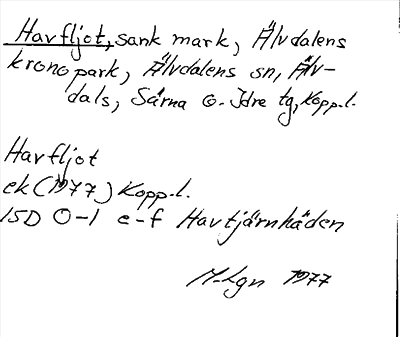 Havfljot, sank mark, Älvdalens
kronopark, Älvdalens sn, Älv-
dals, Särna o. Idre tg, Kopp.l.
Havfljot
ek (1977) Kopp.l.
15D 0-1 e-f Havtjärnhäden
M-Lgn 1977